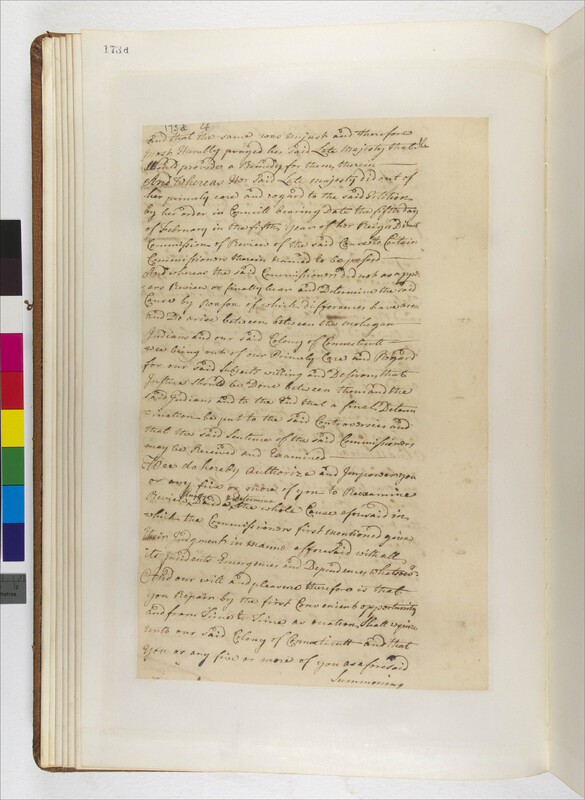 173d
173d 4
and that the same was unjust and therefore
most Humbly prayed her Said Late Majesty that she
would provide a Remedy for them therein
And Whereas Her Said Late Majesty did out of
her princely care and regard to the said Petition
by her order in Councill bearing Date the fifth day
of February in the fifth year of her Reign Direct
Commissions of Review of the said Cause to Certain
Commissioners therein named to be issued
And whereas the said Commissioners did not as appe
ars Review or finally hear and Determine the said
Cause by Reason of which differences have aris
and Do arise between between the Mohegan
Indians and our said Colony of Connecticutt
wee being out of our Princely Care and Regard
for our said Subjects willing and Desirous that
Justice should be Done between them and the
said Indians and to the End that a finall Determ
ination be put to the said Controversies and
that the said Sentence of the said Commissioners
may be Reviewed and Examined
Wee do hereby Authorize and Impower you
or any five or more of you to Reexamine
Review and determine the whole Cause aforesaid in
which the Commissioners first mentioned gave
their Judgment in manner afforesaid with all
its Incidents Emergencies and Dependences whatsoever
And our will and pleasure therefore is that
you Repair by the first Convenient opportunity
and from Time to Time as ocation Shall require
unto our said Colony of Connecticutt and that
you or any five or more of you as aforesaid
Summoning